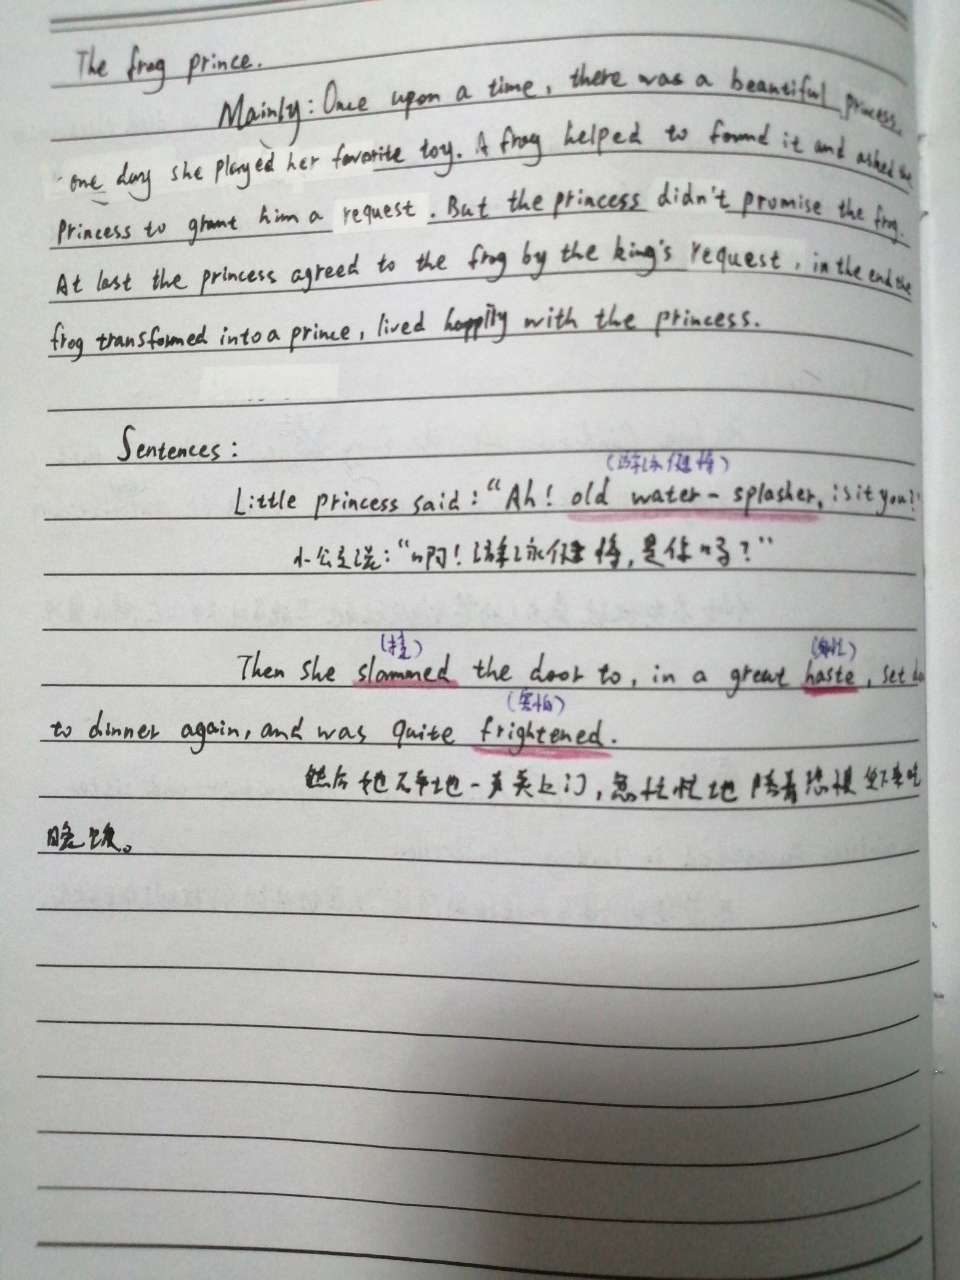 The frog prince.
Mainly: Once upon a time, there was a beautiful princess.
one day she played her favorite toy. A frog helped to found it and asked the
Princess to grant him a request. But the princess didn't promise the frog.
At last the princess agreed to the frog by the king's request, in the end the
frog transformed into a prince, lived happily with the princess.
Sentences:
(游泳健将)
Little princess said: "Ah! old water-splasher, is it you?"
小公主说:"啊!游泳健将,是你吗?"
Then she slammed the door to, in a great haste, set
(害怕)
to dinner again, and was quite frightened.
然后她一声关上门,急忙忙地 恐惧 坐下来吃
晚饭。